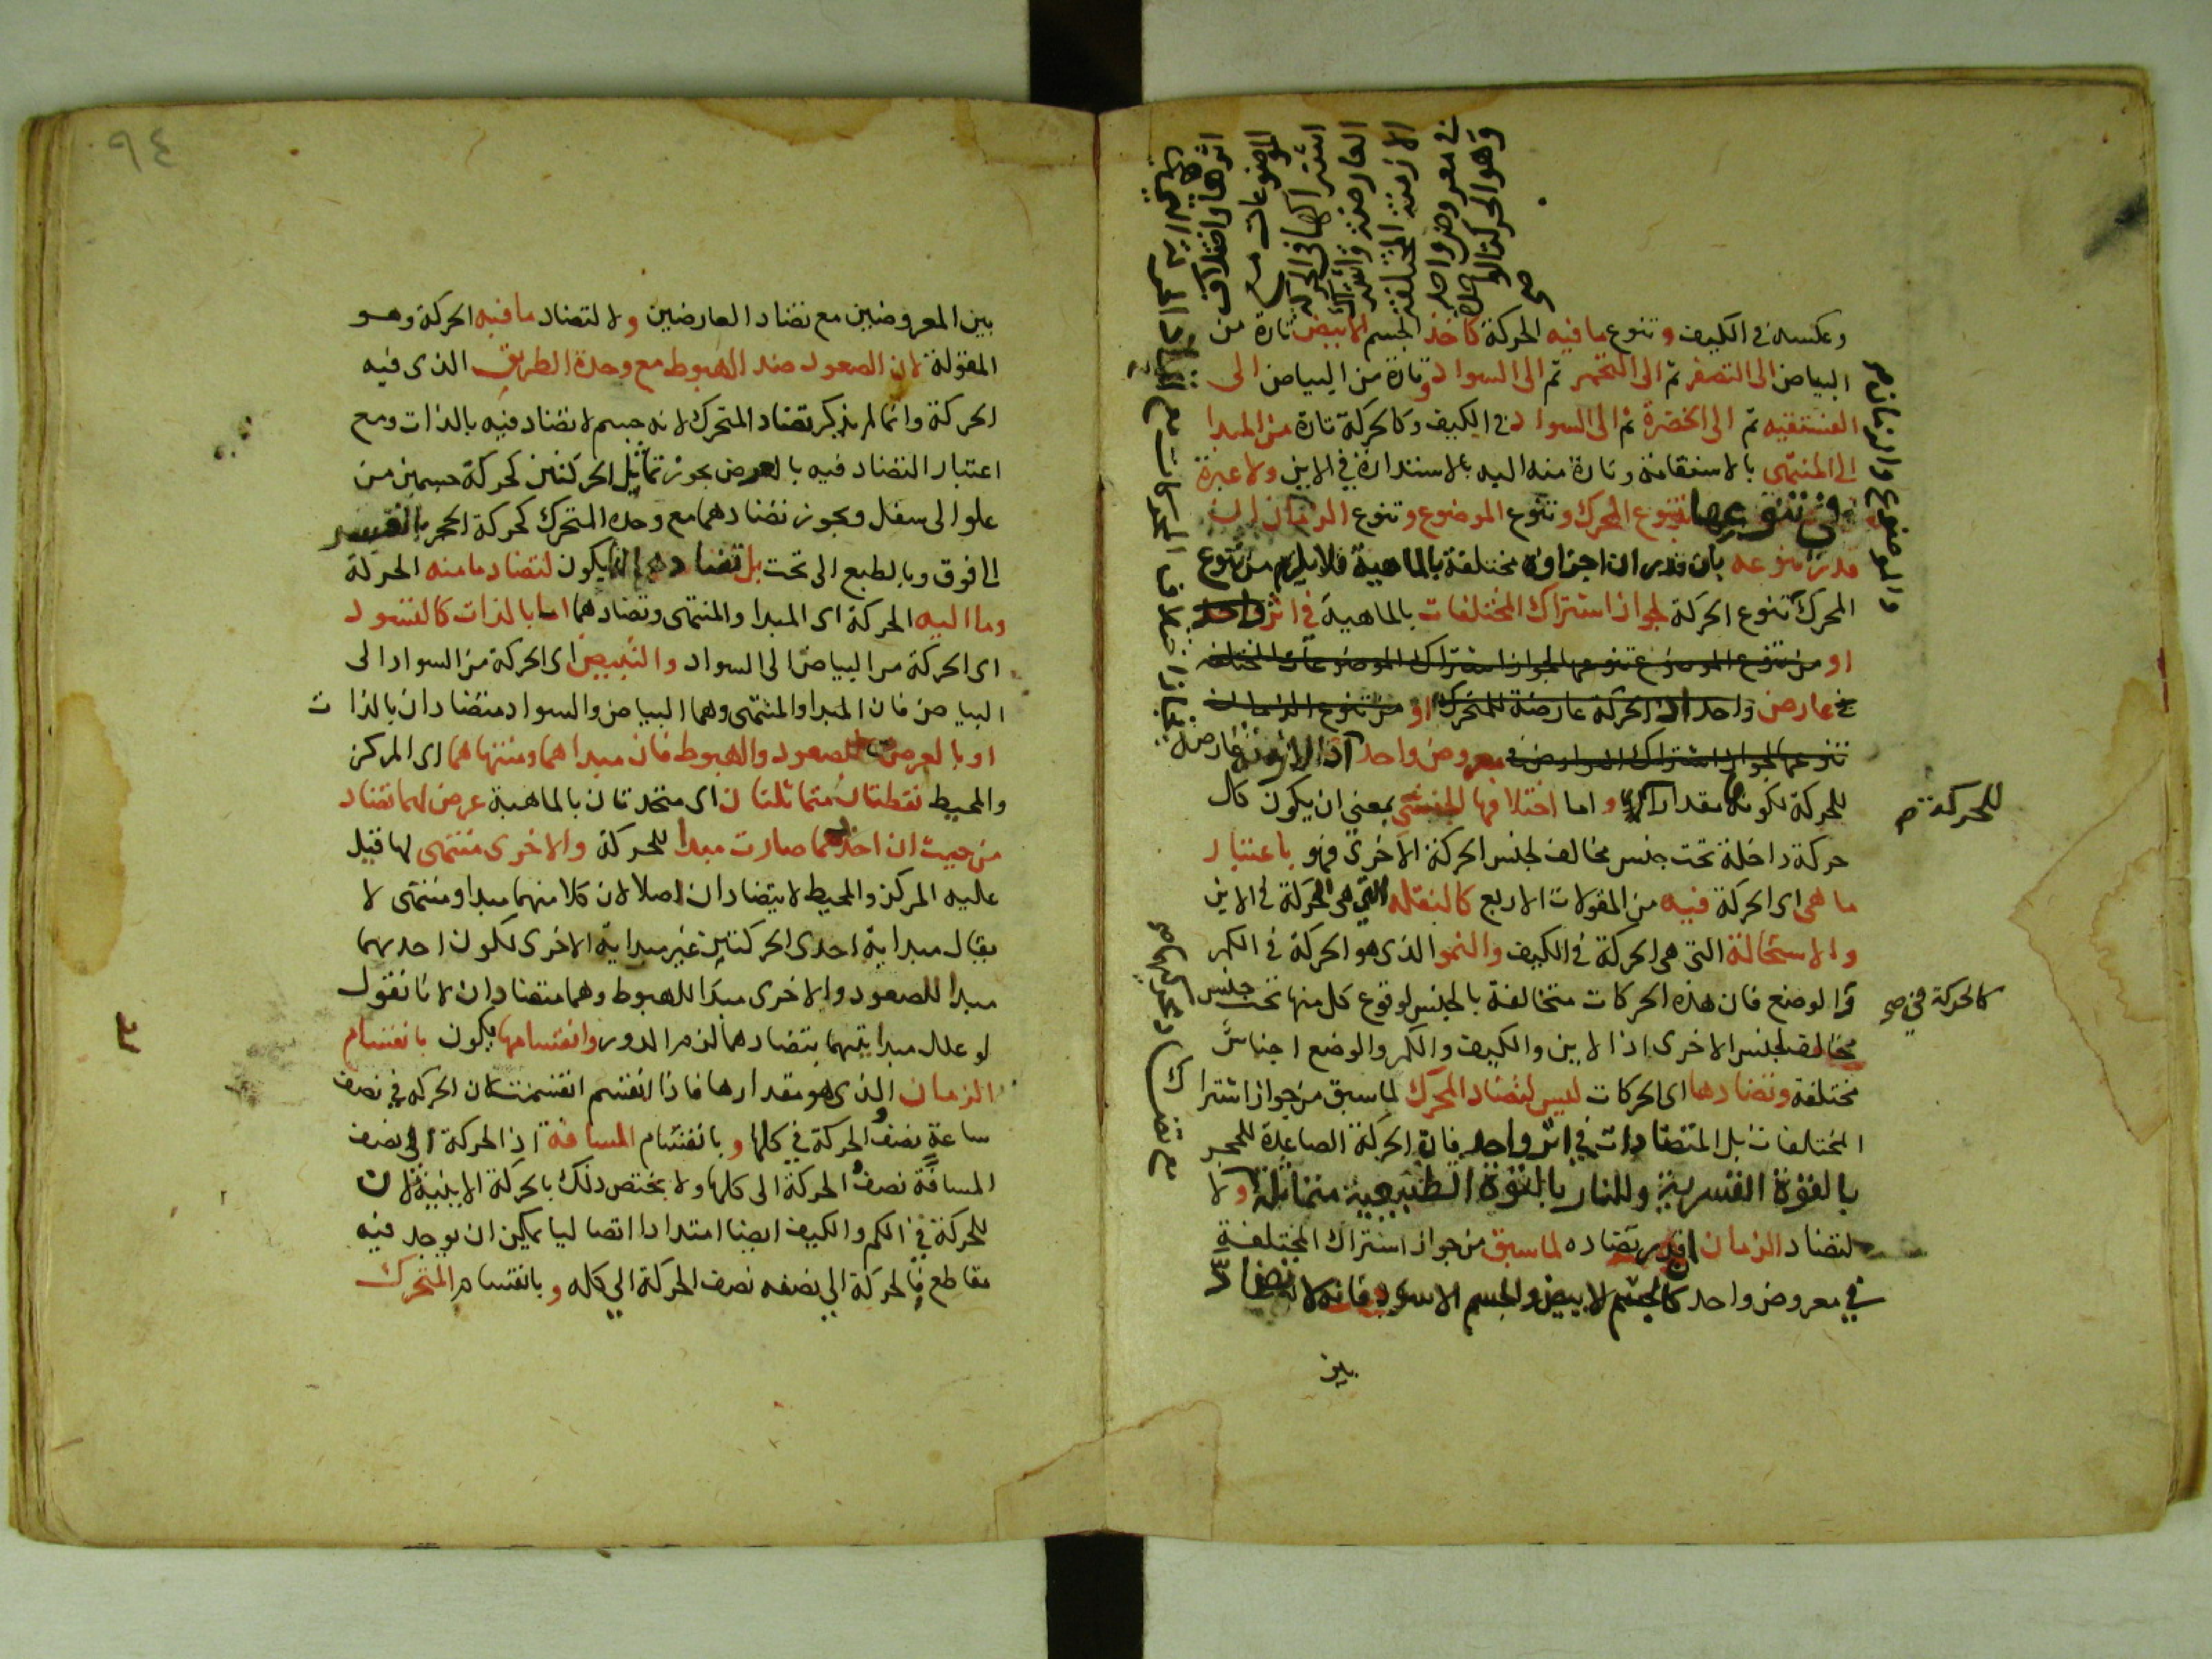 وعكسه في الكيف وتنوع ما فيه الحركة كاخذ الجسم الابيض تارة من
البياض الى التصفر ثم الى التحمر ثم الى السواد وتارة من البياض الى
الفستقيه ثم الى الخضرة ثم الى السواد في الكيف وكالحركة تارة من المبدا
الى المنتهى بالاستقامة وتارة منه اليه بالاستدارة في الاين ولا عبرة
في تنوعها بتنوع المحرك وتنوع الموضوع وتنوع الزمان ان
قدر تنوعه بان قدر ان اجزاوه مختلفة بالماهية فلا يلزم من تنوع
المحرك تنوع الحركة لجواز اشتراك المختلفات بالماهية في اثر واحد
او من تنوع الموضوع تنوعها لجواز اشتراك الموضوعات المختلفه
في عارض واحد اذ الحركة عارضة للمتحرك او من تنوع الزمان
تنوعها لجواز اشتراك العوارض في معروض واحد اذ الازمنة عارضة
للحركة لكونه مقدارا لها واما اختلافها الجنسي بمعنى ان يكون كل
حركة داخلة تحت جنس مخالف لجنس الحركة الاخرى فهو باعتبار
ما هي اى الحركة فيه من المقولات الاربع كالنقله التي هى الحركة في الاين
والاستحالة التى هى الحركة في الكيف والنمو الذى هو الحركة في الكم
و الوضع فان هذه الحركات متخالفة بالجنس لوقوع كل منها تحت جنس
مخالف لجنس الاخرى اذ الاين والكيف والكم والوضع اجناس
مختلفة وتضادها اى الحركات ليس لتضاد المحرك لما سبق من جواز اشتراك
المختلفات بل المتضادات في اثر واحد فان الحركة الصاعدة للحجر
بالقوة القسرية وللنار بالقوة الطبيعية متماثلة ولا
لتضاد الزمان ان قدر تضاده لما سبق من جواز اشتراك المختلفة
في معروض واحد كالجسم الابيض والجسم الاسود فانه لا تضاد
بين
وهو الحركة الواحدة صح
في معروض واحد
الازمنة المختلفة
العارضة واشتراك
اشتراكها في الحركة
الموضوعات مع
اثرها واختلاف
والموضوع والزمان صح
للحركة م
كالحركة في صح
٩٤
بين المعروضين مع تضاد العارضين ولا لتضاد ما فيه الحركة وهو
المقولة لان الصعود ضد الهبوط مع وحدة الطريق الذى فيه
الحركة وانما لم يذكر تضاد المتحرك لانه جسم لا تضاد فيه بالذات ومع
اعتبار التضاد فيه بالعرض يجوز تماثل الحركتين كحركة جسمين من
علو الى سفل ويجوز تضادهما مع وحدة المتحرك كحركة الحجر بالقسر
الى فوق وبالطبع الى تحت بل تضادها انما يكون لتضاد ما منه الحركة
وما اليه الحركة اى المبدا والمنتهى وتضادهما اما بالذات كالتسود
اى الحركة من البياض الى السواد والتبييض اى الحركة من السواد الى
البياض فان المبدا والمنتهى وهما البياض والسواد متضادان بالذات
او بالعرض كالصعود والهبوط فان مبداهما ومنتهاهما اى المركز
والمحيط نقطتان متماثلتان اى متحدتان بالماهية عرض لهما تضاد
من حيث ان احدهما صارت مبدا للحركة والاخرى منتهى لها قيل
عليه المركز والمحيط لا يتضادان اصلا لان كلا منهما مبدا ومنتهى لا
يقال مبداية احدى الحركتين غير مبداية الاخرى لكون احديهما
مبدا للصعود والاخرى مبدا للهبوط وهما متضادان لانا نقول
لو علل مبدايتهما بتضادهما لزم الدور وانقسامها يكون بانقسام
الزمان الذى هو مقدارها فاذا انقسم انقسمت لان الحركة في نصف
ساعة نصف الحركة في كلها وبانقسام المسافة اذ الحركة الى نصف
المسافة نصف الحركة الى كلها ولا يختص ذلك بالحركة الاينية لان
للحركة في الكم والكيف ايضا امتدادا اتصاليا يمكن ان يوجد فيه
مقاطع فالحركة الى نصفه نصف الحركة الى كله وبانقسام المتحرك